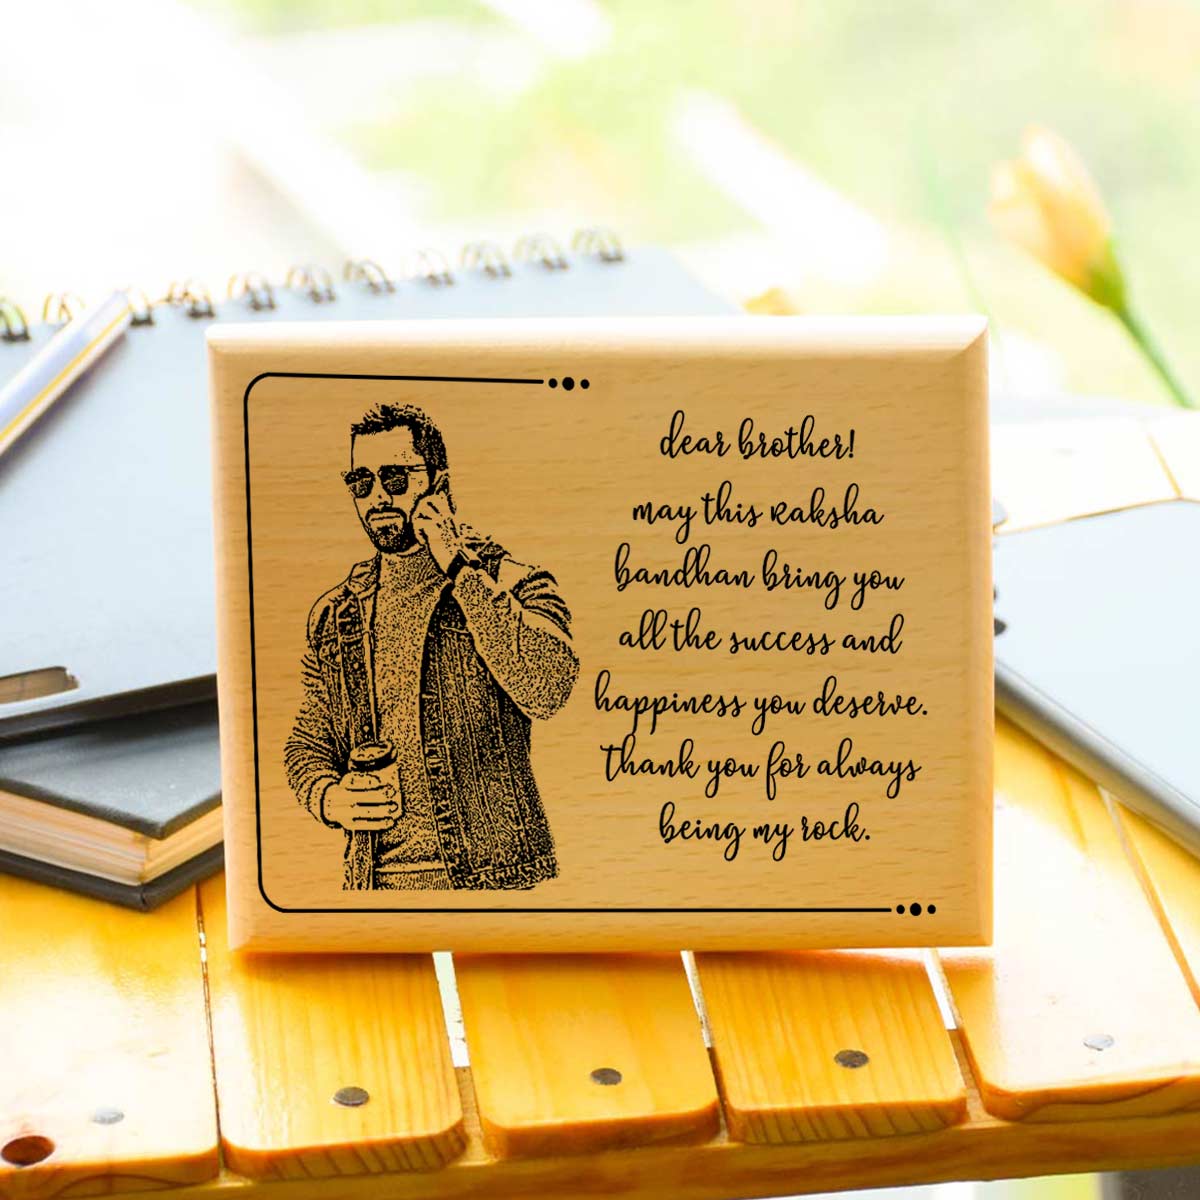 dear brother!
may this Raksha
bandhan bring you
all the success and
happiness you deserve.
Thank you for always
being my rock.